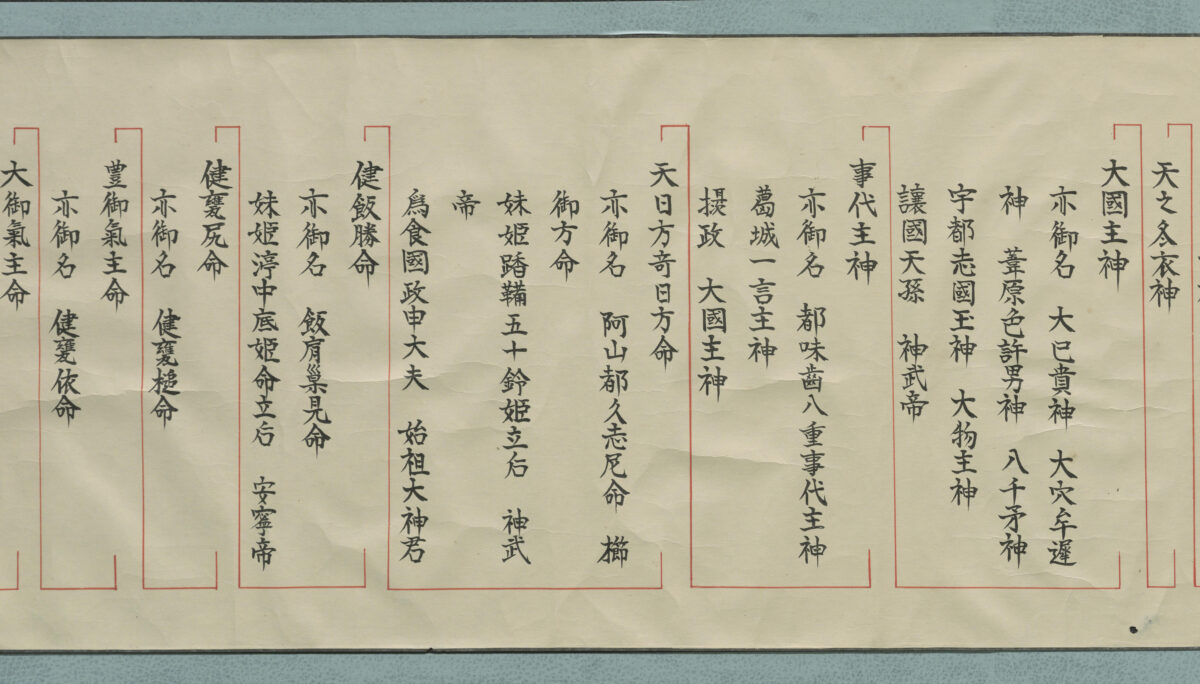 天之冬衣神
大國主神
亦御名　大巳貴神　大穴牟遲
神　葦原色許男神　八千矛神
宇都志國玉神　大物主神
讓國天孫　神武帝
事代主神
亦御名　都味齒八重事代主神
葛城一言主神
摂政　大國主神
天日方奇日方命
亦御名　阿山都久志尼命　櫛
御方命
妹姫蹈鞴五十鈴姫立后　神武
帝
為食國政申大夫　始祖大神君
健飯勝命
亦御名　飯肩巣見命
妹姫渟中底姫命立后　安寧帝
健甕尻命
亦御名　健甕槌命
豊御氣主命
亦御名　健甕依命
大御氣主命